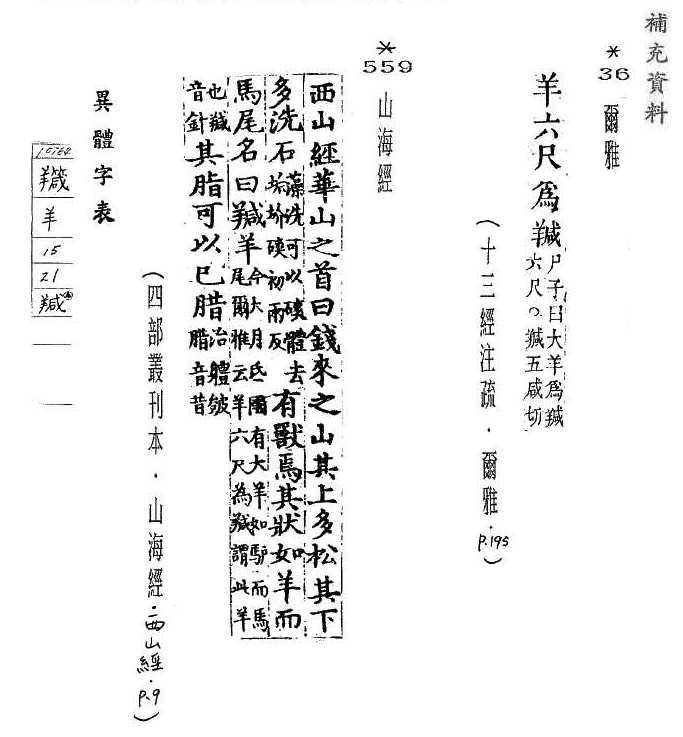 補充資料
*
36
爾雅
羊六尺為羬
尸子曰大羊為羬
六尺。羬五咸切
(十三經注疏.爾雅.p.195)
*
559
山海經
西山經華山之首曰錢來之山其上多松其下
多洗石
澡洗可以磢體去
垢圿磢初兩反
有獸焉其狀如羊而
馬尾名曰羬羊
今大月氐國有大羊如驴而馬
尾爾雅云羊六尺為羬謂此羊
也羬
音針
其脂可以已腊
治軆皴
腊音昔
(四部叢刊本.山海經.西山經.p.9)
異體字表
羊
15
21
羬